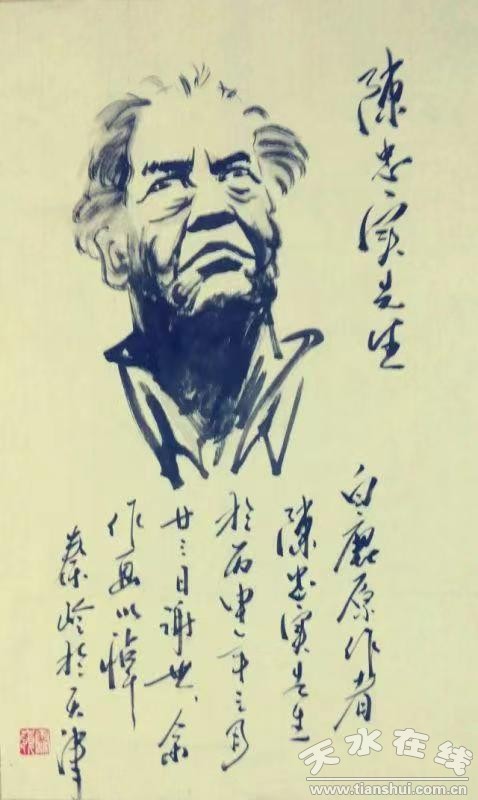 陳忠实先生
白鹿原作者
陳忠实先生
於丙申年三月
廿三日谢世、余
作画以悼
秦岭於天津
天水在线
www.tianshui.com.cn